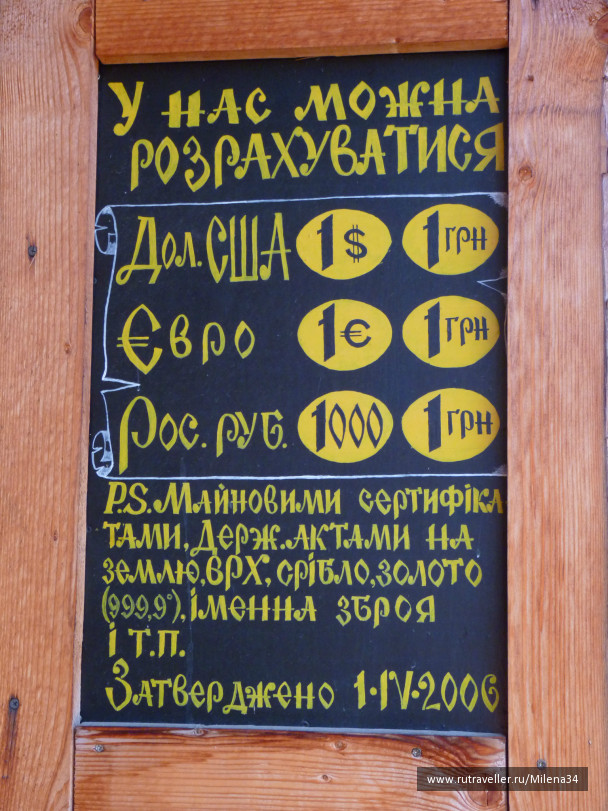 У нас можна
розрахуватися
Дол. США 1$ 1грн
Євро 1€ 1грн
Рос. руб. 1000 1грн
P.S. Майновими сертифіка
тами, Держ. актами на
землю, ВРХ, срібло, золото
(999,9°), іменна зброя
і т.п.
Затверджено 1·IV·2006
www.rutraveller.ru/Milena34